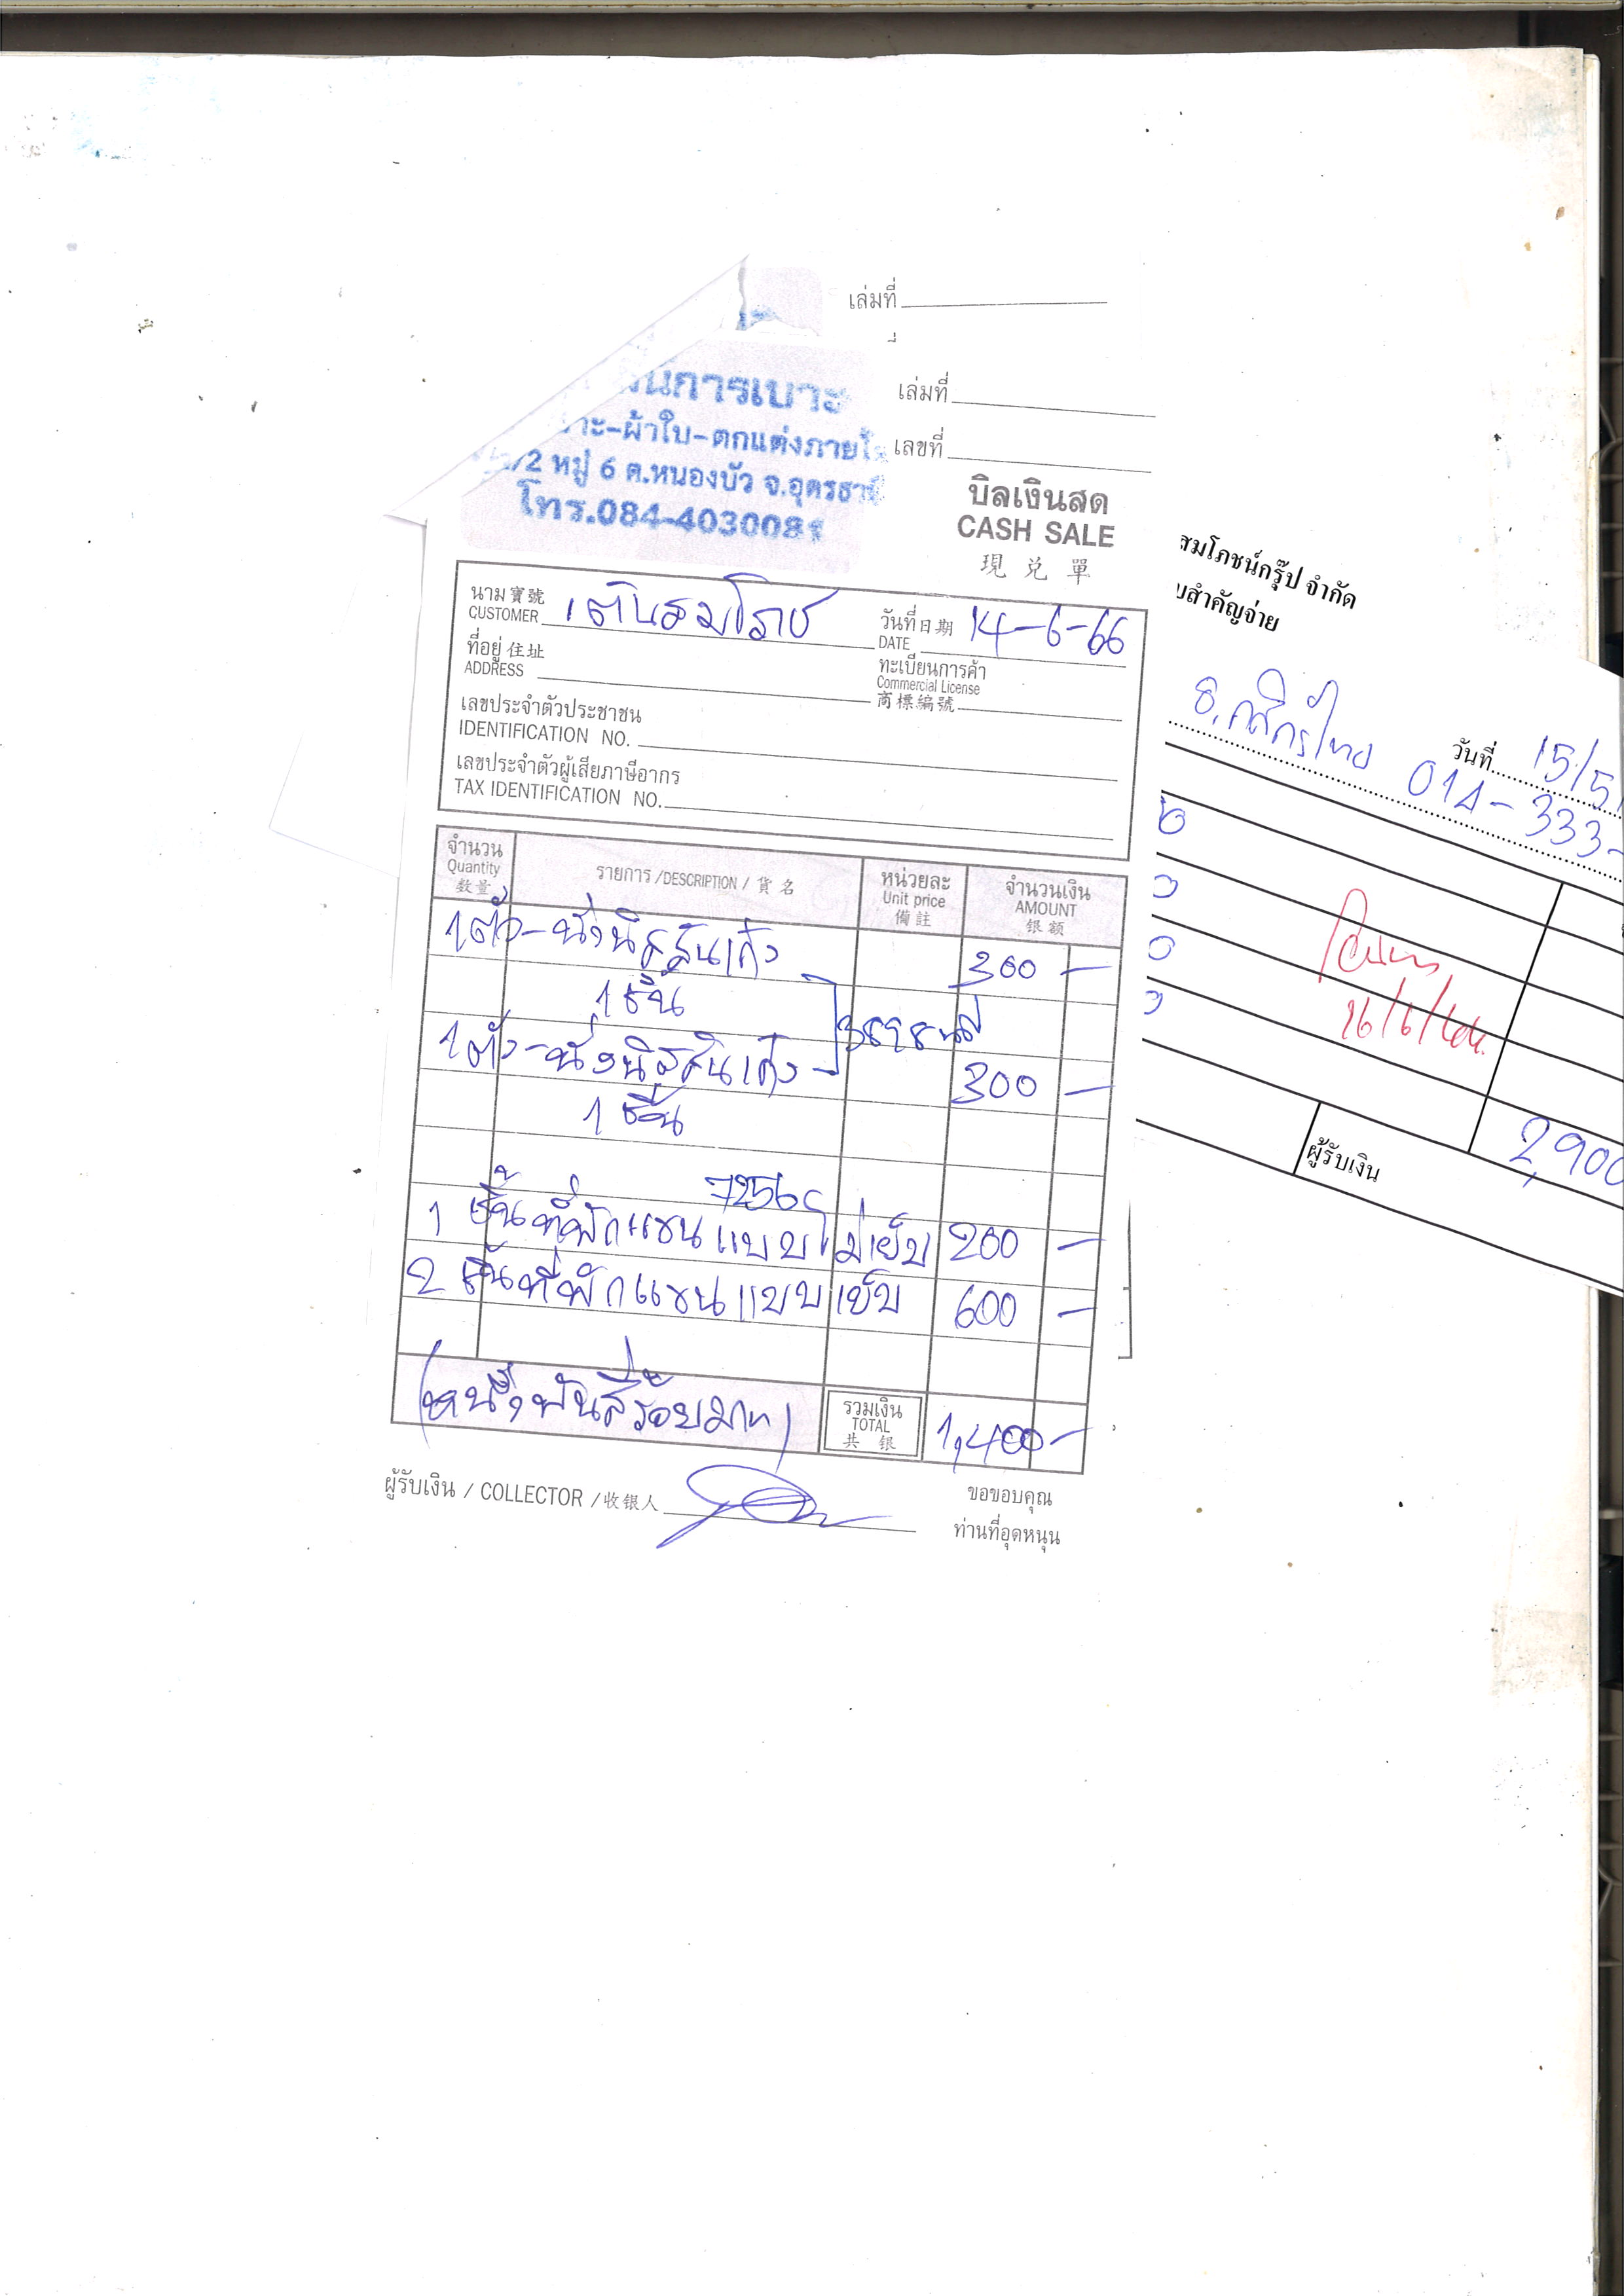 เล่มที่
เล่มที่
เลขที่
นการเบาะ
าะ-ผ้าใบ-ตกแต่งภายใ
/2 หมู่ 6 ต.หนองบัว จ.อุดรธานี
โทร.084-4030081
บิลเงินสด
CASH SALE
現兌單
นาม 寶號
CUSTOMER เตินสมโภช
วันที่ 日期
DATE 14-6-66
ที่อยู่ 住址
ADDRESS
ทะเบียนการค้า
Commercial License
商標編號
เลขประจำตัวประชาชน
IDENTIFICATION NO.
เลขประจำตัวผู้เสียภาษีอากร
TAX IDENTIFICATION NO.
จำนวน
Quantity
数量
รายการ /DESCRIPTION / 貨名
หน่วยละ
Unit price
備註
จำนวนเงิน
AMOUNT
银额
1ตัว-นั่งนิสสันเก๋ง 300 -
1 ชิ้น
1ตัว-นั่งนิสสันเก๋ง 300 -
1 ชิ้น
7256
1 ชิ้นที่พักแขนแบบไม่เย็บ 200 -
2 ชิ้นที่พักแขนแบบเย็บ 600 -
(หนึ่งพันสี่ร้อยบาท)
รวมเงิน
TOTAL
共银
1,400 -
ผู้รับเงิน / COLLECTOR /收银人
ขอขอบคุณ
ท่านที่อุดหนุน
สมโภชน์กรุ๊ป จำกัด
บสำคัญจ่าย
ธ.กสิกรไทย 014-333-
วันที่ 15/5
16/6/66
ผู้รับเงิน
2,900